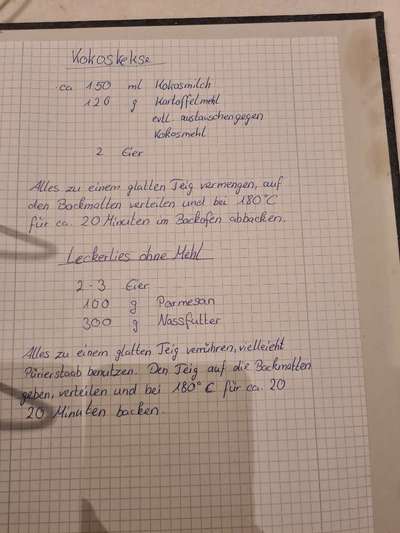 Kokoskekse
ca 150 ml Kokosmilch
120 g Kartoffelmehl
evtl. austauschen gegen
Kokosmehl
2 Eier
Alles zu einem glatten Teig vermengen, auf
den Backmatten verteilen und bei 180°C
für ca. 20 Minuten im Backofen abbacken.
Leckerlies ohne Mehl
2-3 Eier
100 g Parmesan
300 g Nassfutter
Alles zu einem glatten Teig verrühren, vielleicht
Pürierstaab benutzen. Den Teig auf die Backmatten
geben, verteilen und bei 180°C für ca. 20
20 Minuten backen.